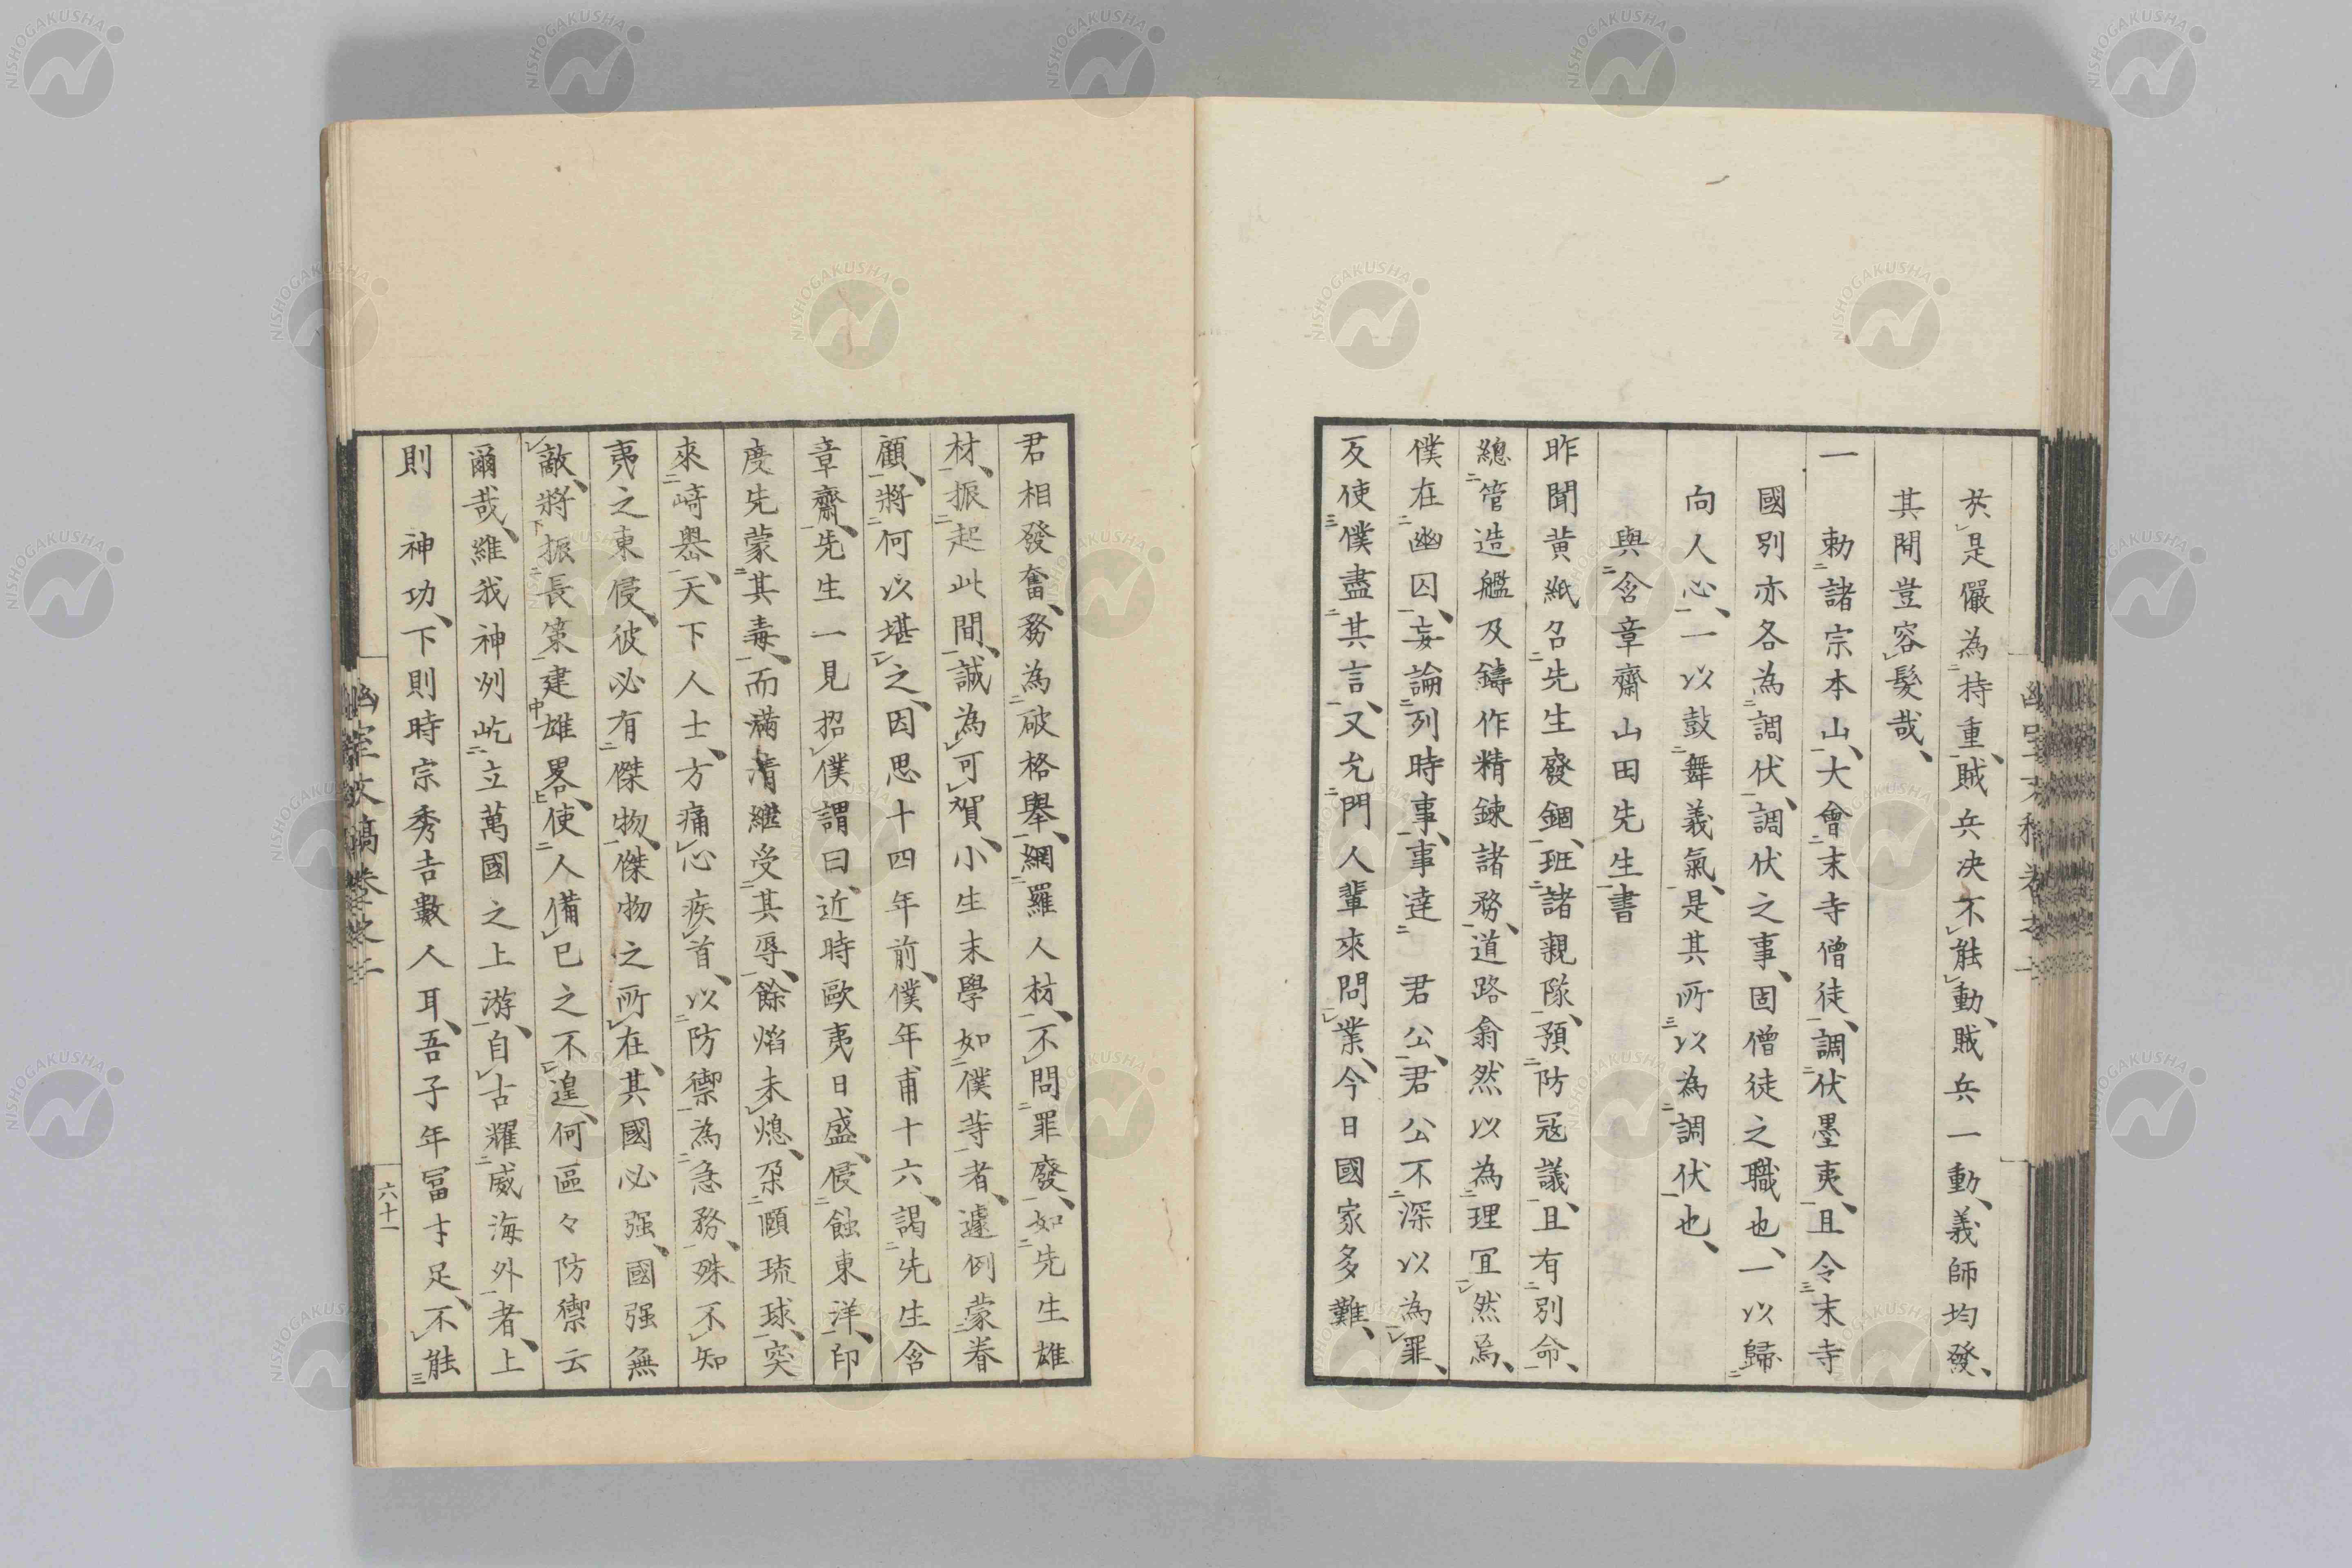 矣是儼為持重、賊兵决不能動、賊兵一動、義師均發、
其間豈容髮哉、
一　勅諸宗本山、大會末寺僧徒、調伏墨夷、且令末寺
國別亦各為調伏、調伏之事、固僧徒之職也、一以歸
向人心、一以鼓舞義氣、是其所以為調伏也、
與含章齋山田先生書
昨聞黄紙召先生廢錮、班諸親隊、預防寇議、且有別命、
總管造艦及鑄作精鍊諸務、道路翕然以為理冝然焉、
僕在幽囚、妄論列時事、事達　君公、君公不深以為罪、
反使僕盡其言、又允門人輩來問業、今日國家多難、
君相發奮、務為破格舉、網羅人材、不問罪廢、如先生雄
材、振起此間、誠為可賀、小生末學如僕等者、遽例蒙眷
顧、將何以堪之、因思十四年前、僕年甫十六、謁先生含
章齋、先生一見招僕謂曰、近時歐夷日盛、侵蝕東洋、印
度先蒙其毒、而滿清繼受其辱、餘焰未熄、朶頤琉球、突
來﨑嶴、天下人士、方痛心疾首、以防禦為急務、殊不知
夷之東侵、彼必有傑物、傑物之所在、其國必强、國强無
敵、將振長策建雄畧、使人備已之不遑、何區々防禦云
爾哉、維我神州屹立萬國之上游、自古耀威海外者、上
則　神功、下則時宗秀吉數人耳、吾子年冨才足、不能
幽室文稿卷之二
六十一
NISHOGAKUSHA